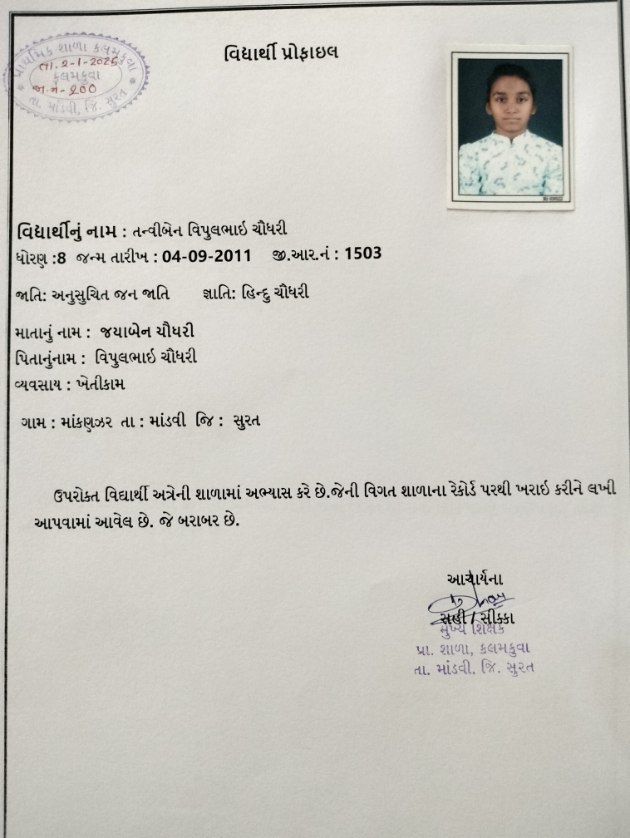 પ્રાથમિક શાળા કલમકુવા
તા. 2-1-2025
કલમકુવા
જા.નં-200
તા. માંડવી, જિ. સુરત
વિદ્યાર્થી પ્રોફાઇલ
વિદ્યાર્થીનું નામ : તન્વીબેન વિપુલભાઇ ચૌધરી
ધોરણ :8 જન્મ તારીખ : 04-09-2011 જી.આર.નં : 1503
જાતિ: અનુસુચિત જન જાતિ જ્ઞાતિ: હિન્દુ ચૌધરી
માતાનું નામ : જયાબેન ચૌધરી
પિતાનુંનામ : વિપુલભાઇ ચૌધરી
વ્યવસાય : ખેતીકામ
ગામ : માંકણઝર તા : માંડવી જિ : સુરત
ઉપરોક્ત વિદ્યાર્થી અત્રેની શાળામાં અભ્યાસ કરે છે.જેની વિગત શાળાના રેકોર્ડ પરથી ખરાઇ કરીને લખી
આપવામાં આવેલ છે. જે બરાબર છે.
આચાર્યના
સહી / સીક્કા
મુખ્ય શિક્ષક
પ્રા. શાળા, કલમકુવા
તા. માંડવી. જિ. સુરત